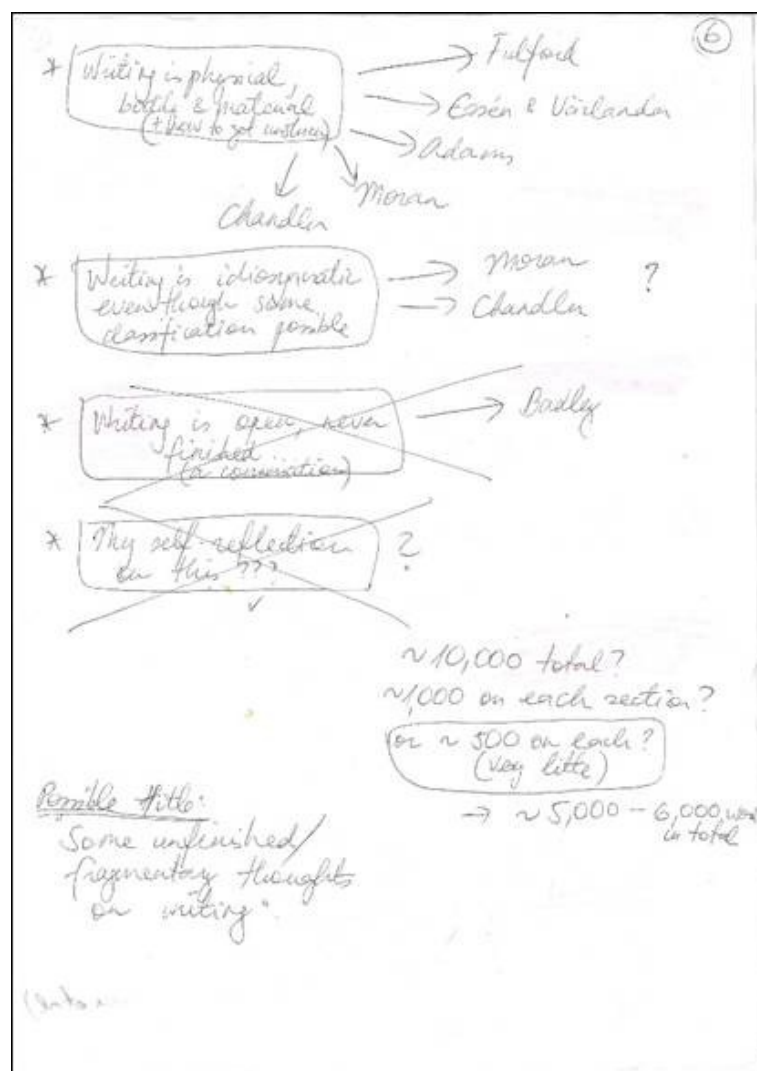 6
* Writing is physical,
bodily & material
(+ how to get unstuck)
→ Fulford
→ Essén & Värlander
→ Adams
→ Moran
Chandler
* Writing is idiosyncratic
even though some
classification possible
→ Moran
→ Chandler
?
* Writing is open, never
finished
(a conversation)
→ Badley
* My self-reflection
on this ???
?
~10,000 total?
~1,000 on each section?
or ~ 500 on each?
(very little)
→ ~5,000 – 6,000 wor
in total
Possible title:
Some unfinished/
fragmentary thoughts
on writing"